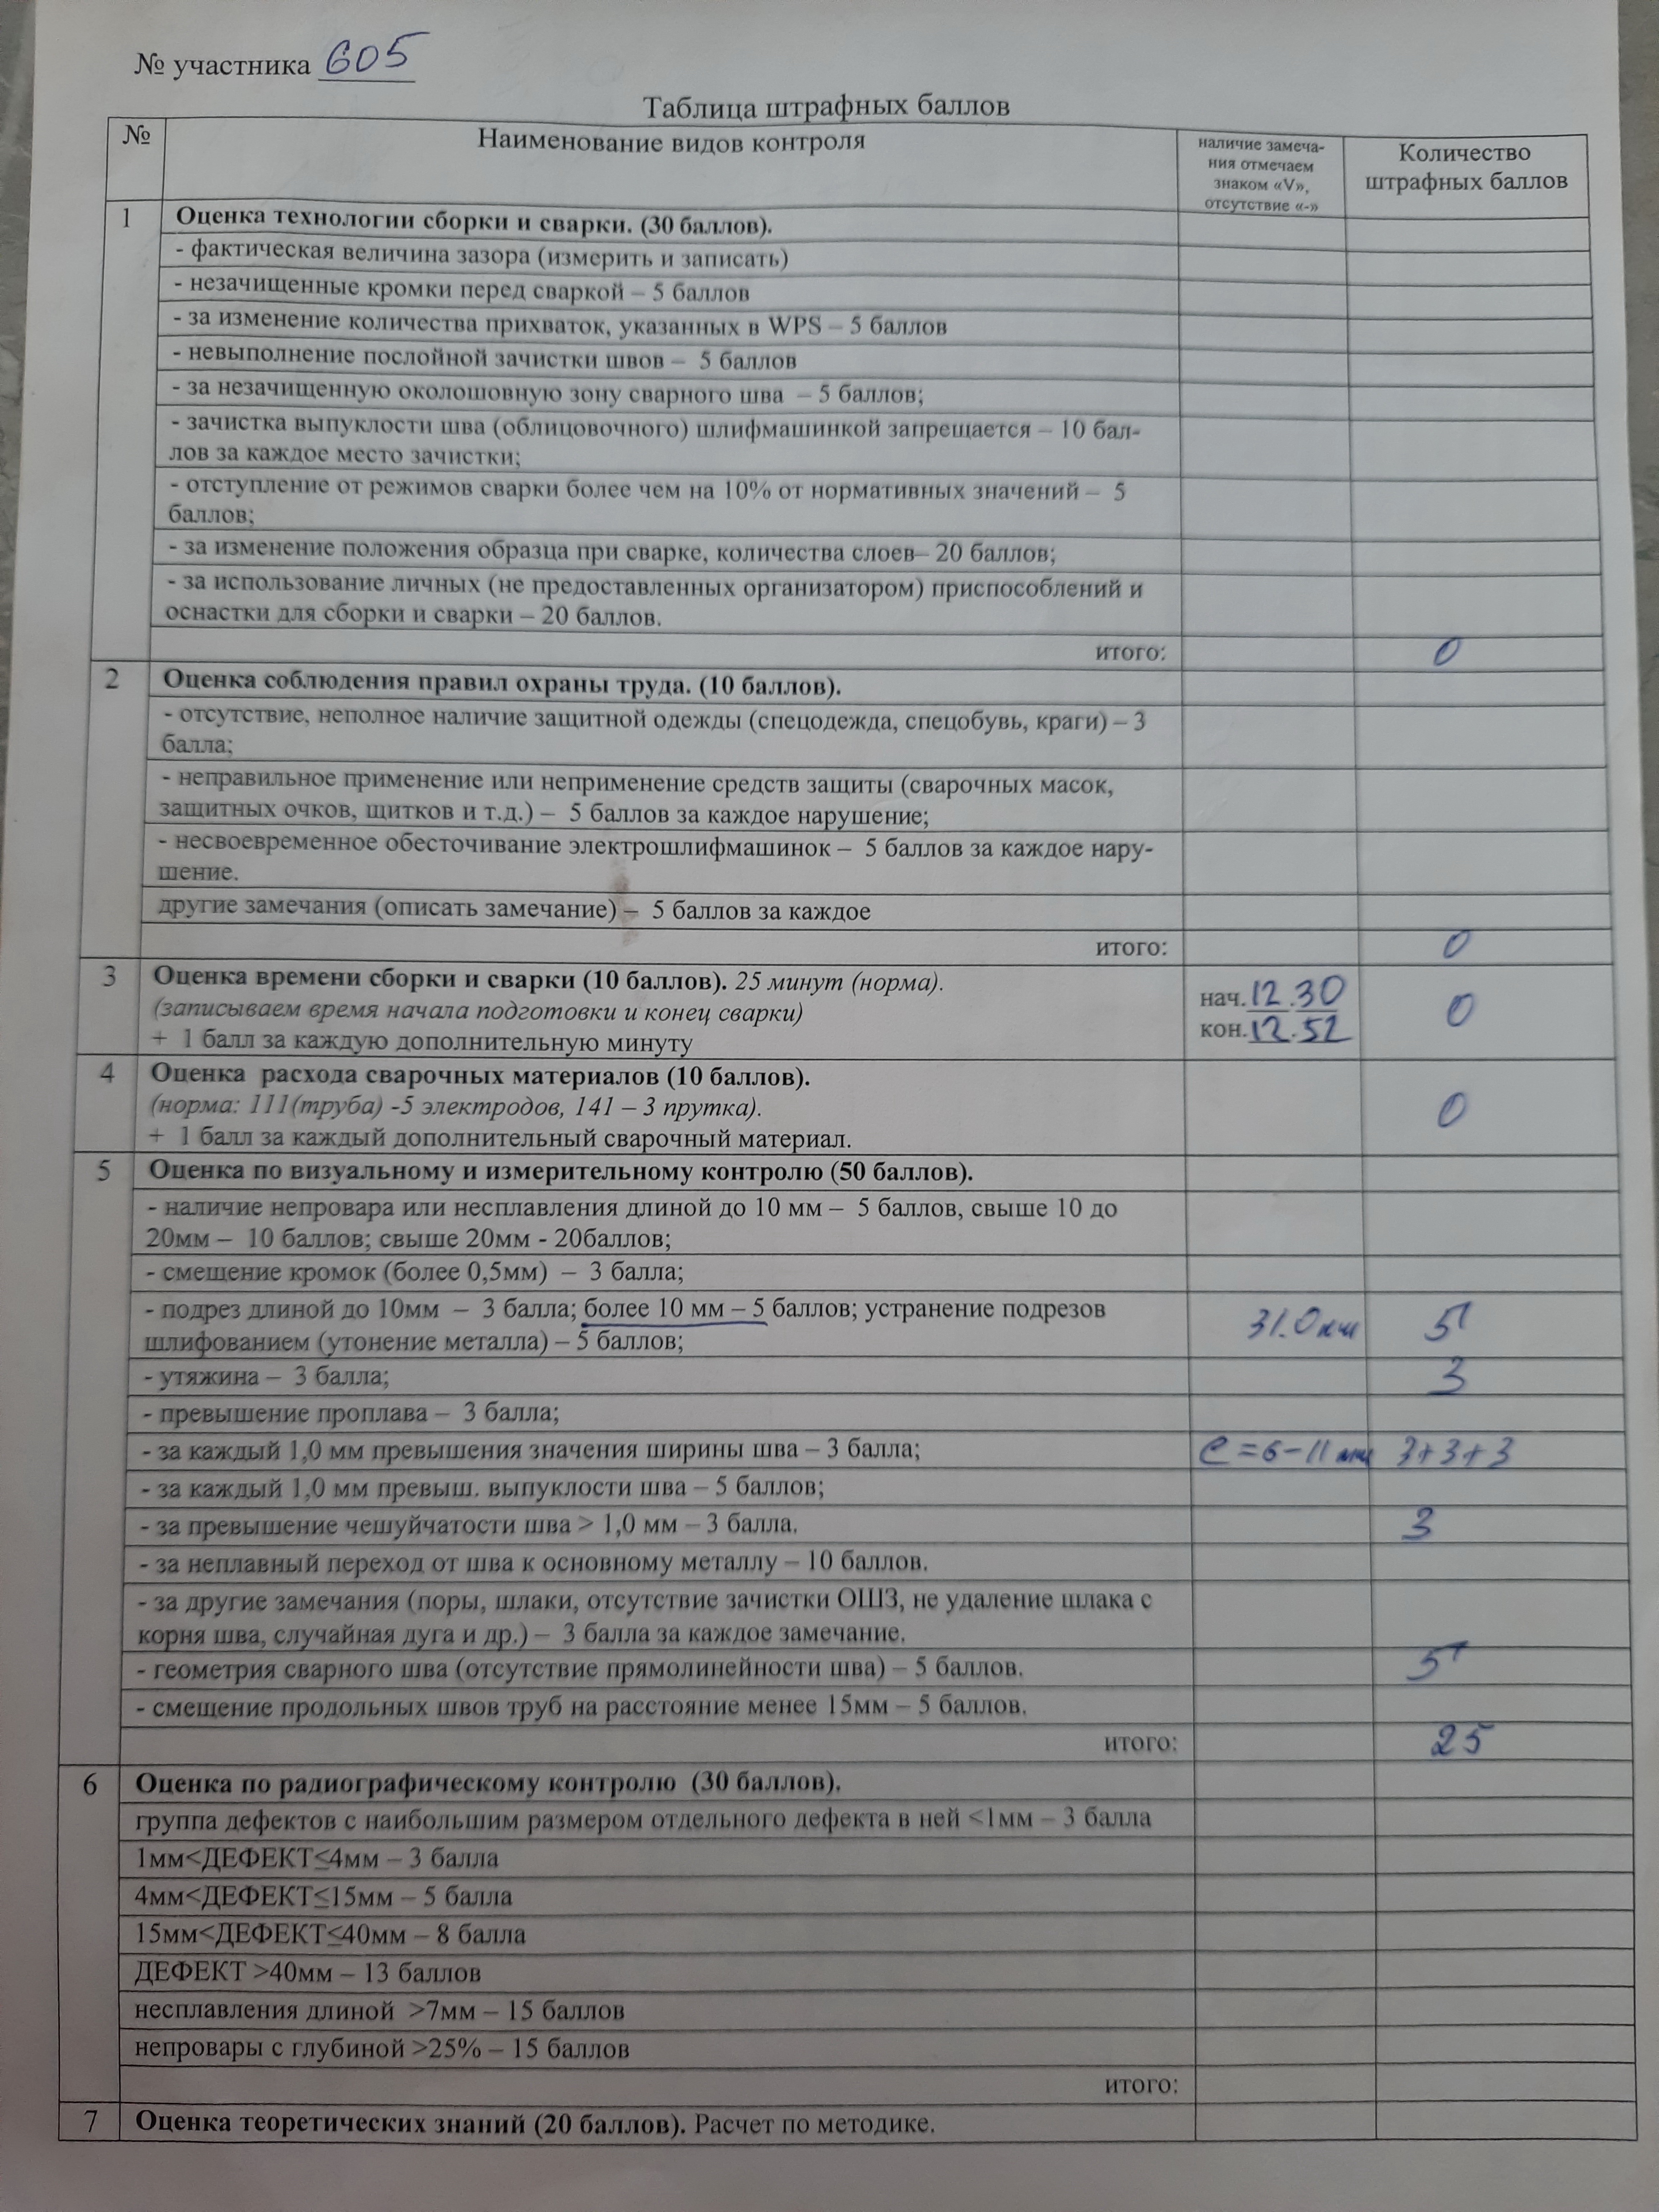 № участника 605
Таблица штрафных баллов
№
Наименование видов контроля
наличие замеча-
ния отмечаем
знаком «V»,
отсутствие «-»
Количество
штрафных баллов
1 Оценка технологии сборки и сварки. (30 баллов).
- фактическая величина зазора (измерить и записать)
- незачищенные кромки перед сваркой – 5 баллов
- за изменение количества прихваток, указанных в WPS – 5 баллов
- невыполнение послойной зачистки швов – 5 баллов
- за незачищенную околошовную зону сварного шва – 5 баллов;
- зачистка выпуклости шва (облицовочного) шлифмашинкой запрещается – 10 бал-
лов за каждое место зачистки;
- отступление от режимов сварки более чем на 10% от нормативных значений – 5
баллов;
- за изменение положения образца при сварке, количества слоев– 20 баллов;
- за использование личных (не предоставленных организатором) приспособлений и
оснастки для сборки и сварки – 20 баллов.
итого: 0
2 Оценка соблюдения правил охраны труда. (10 баллов).
- отсутствие, неполное наличие защитной одежды (спецодежда, спецобувь, краги) – 3
балла;
- неправильное применение или неприменение средств защиты (сварочных масок,
защитных очков, щитков и т.д.) – 5 баллов за каждое нарушение;
- несвоевременное обесточивание электрошлифмашинок – 5 баллов за каждое нару-
шение.
другие замечания (описать замечание) – 5 баллов за каждое
итого: 0
3 Оценка времени сборки и сварки (10 баллов). 25 минут (норма).
(записываем время начала подготовки и конец сварки)
+ 1 балл за каждую дополнительную минуту
нач.12.30
кон.12.52
0
4 Оценка расхода сварочных материалов (10 баллов).
(норма: 111(труба) -5 электродов, 141 – 3 прутка).
+ 1 балл за каждый дополнительный сварочный материал.
0
5 Оценка по визуальному и измерительному контролю (50 баллов).
- наличие непровара или несплавления длиной до 10 мм – 5 баллов, свыше 10 до
20мм – 10 баллов; свыше 20мм - 20баллов;
- смещение кромок (более 0,5мм) – 3 балла;
- подрез длиной до 10мм – 3 балла; более 10 мм – 5 баллов; устранение подрезов
шлифованием (утонение металла) – 5 баллов;
31.0мм 5
- утяжина – 3 балла; 3
- превышение проплава – 3 балла;
- за каждый 1,0 мм превышения значения ширины шва – 3 балла; e=6-11мм 3+3+3
- за каждый 1,0 мм превыш. выпуклости шва – 5 баллов;
- за превышение чешуйчатости шва > 1,0 мм – 3 балла. 3
- за неплавный переход от шва к основному металлу – 10 баллов.
- за другие замечания (поры, шлаки, отсутствие зачистки ОШЗ, не удаление шлака с
корня шва, случайная дуга и др.) – 3 балла за каждое замечание.
- геометрия сварного шва (отсутствие прямолинейности шва) – 5 баллов. 5
- смещение продольных швов труб на расстояние менее 15мм – 5 баллов.
итого: 25
6 Оценка по радиографическому контролю (30 баллов).
группа дефектов с наибольшим размером отдельного дефекта в ней <1мм – 3 балла
1мм<ДЕФЕКТ≤4мм – 3 балла
4мм<ДЕФЕКТ≤15мм – 5 балла
15мм<ДЕФЕКТ≤40мм – 8 балла
ДЕФЕКТ >40мм – 13 баллов
несплавления длиной >7мм – 15 баллов
непровары с глубиной >25% – 15 баллов
итого:
7 Оценка теоретических знаний (20 баллов). Расчет по методике.